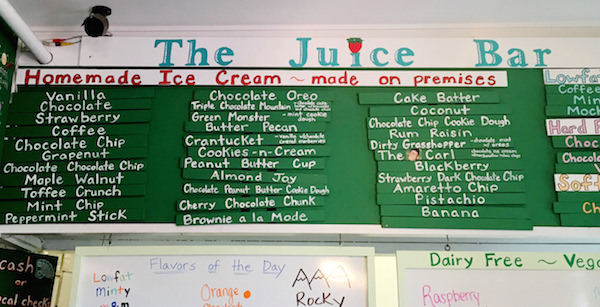 The Juice Bar
Homemade Ice Cream ~ made on premises
Vanilla
Chocolate
Strawberry
Coffee
Chocolate Chip
Grapenut
Chocolate Chocolate Chip
Maple Walnut
Toffee Crunch
Mint Chip
Peppermint Stick
Chocolate Oreo
Triple Chocolate Mountain
Green Monster - mint cookie dough
Butter Pecan
Crantucket
Cookies-n-Cream
Peanut Butter Cup
Almond Joy
Chocolate Peanut Butter Cookie Dough
Cherry Chocolate Chunk
Brownie a la Mode
Cake Batter
Coconut
Chocolate Chip Cookie Dough
Rum Raisin
Dirty Grasshopper
The Carl
Blackberry
Strawberry Dark Chocolate Chip
Amaretto Chip
Pistachio
Banana
Lowfat
Coffee
Mint
Moch
Hard F
Choc
Chocola
Soft
Choc
Chi
cash or
cal checks
Flavors of the Day
Lowfat
minty
Orange
AAA
Rocky
Dairy Free ~ Vega
Raspberry